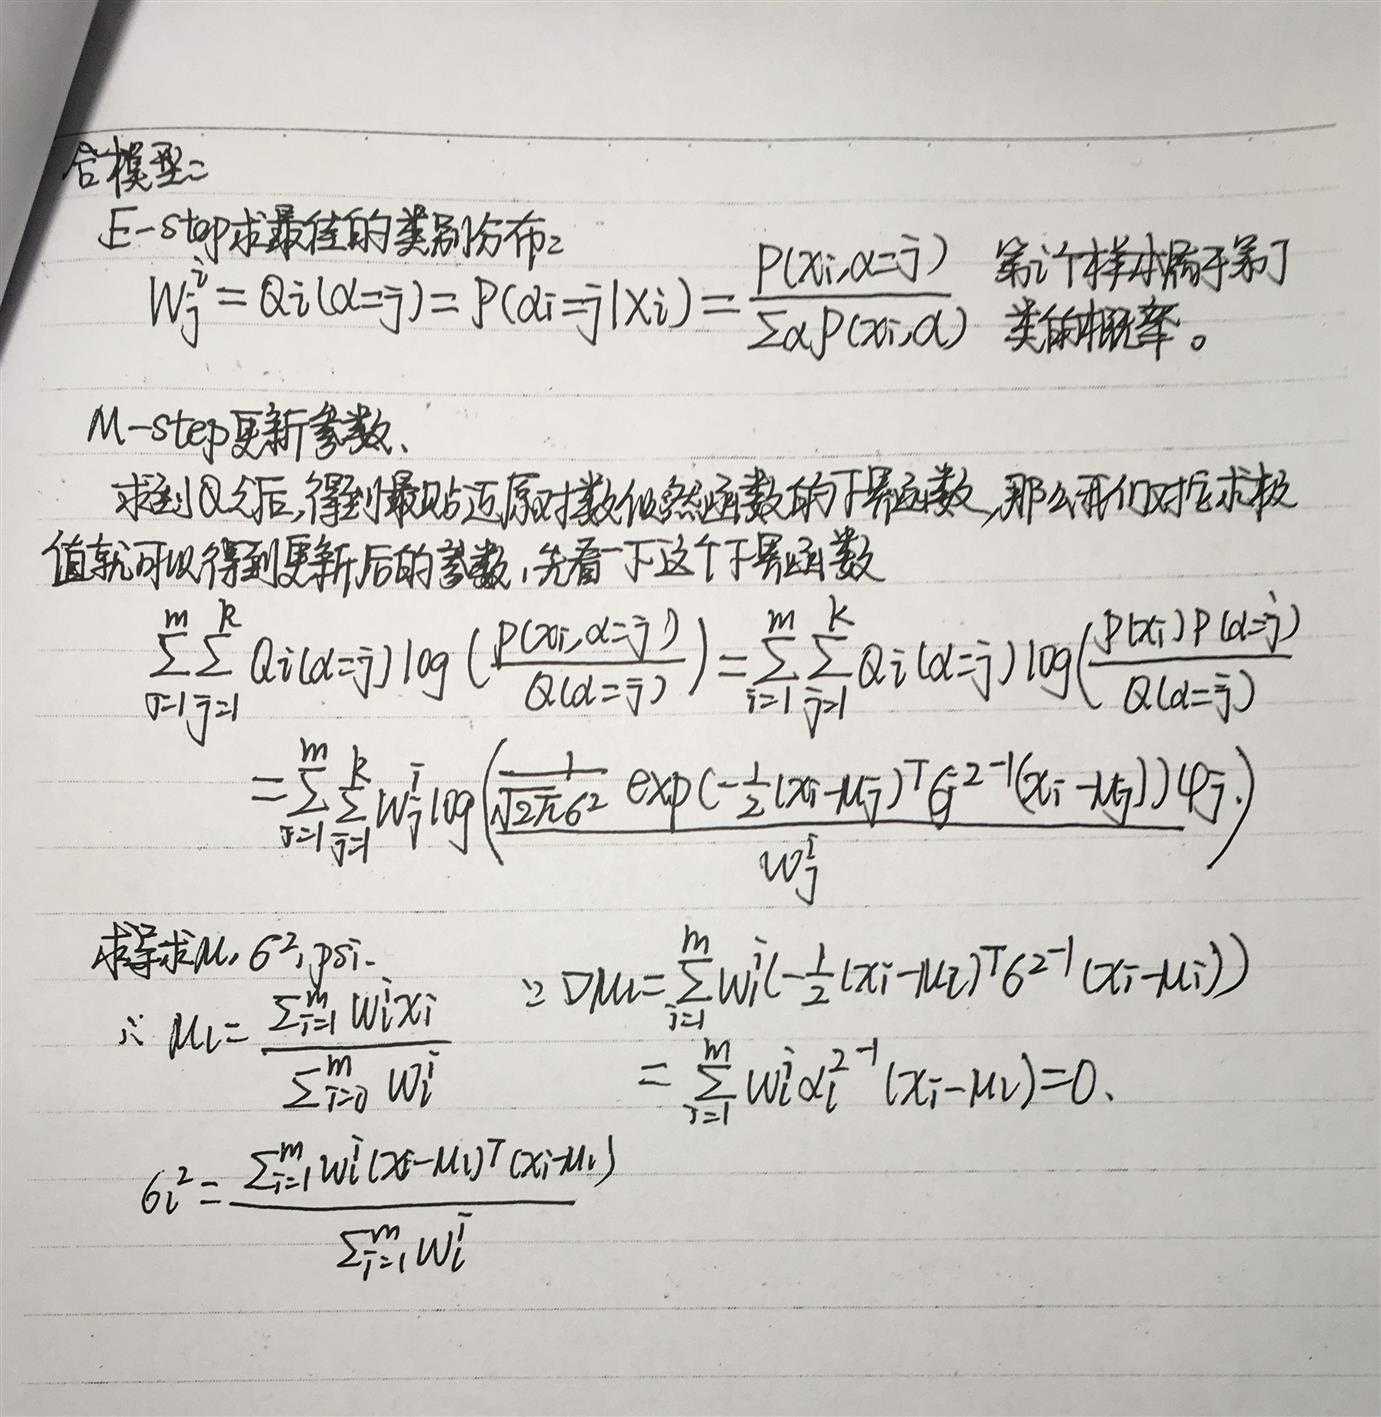 合模型:
E-step求最佳的类别分布:
W_j^i = Q_i(α=j) = P(α_i=j|x_i) = P(x_i,α=j) / Σ_α P(x_i,α) 第i个样本属于第j
类的概率。
M-step更新参数、
求到Q之后,得到最贴近原对数似然函数的下界函数,那么我们对它求极
值就可以得到更新后的参数,先看一下这个下界函数
Σ_{i=1}^m Σ_{j=1}^k Q_i(α=j) log(P(x_i,α=j) / Q(α=j)) = Σ_{i=1}^m Σ_{j=1}^k Q_i(α=j) log(P(x_i)P(α=j) / Q(α=j))
= Σ_{i=1}^m Σ_{j=1}^k W_j^i log(1/√2πσ² exp(-1/2(x_i-μ_j)^T σ_j^{2-1}(x_i-μ_j))φ_j. / W_j^i)
求导求μ,σ²,psi.
∵ ∇μ_l = Σ_{i=1}^m W_l^i(-1/2(x_i-μ_l)^T σ^{2-1}(x_i-μ_i))
∴ μ_l = Σ_{i=1}^m W_l^i x_i / Σ_{i=0}^m W_l^i
= Σ_{i=1}^m W_l^i α_l^{2-1}(x_i-μ_l)=0、
σ_l² = Σ_{i=1}^m W_l^i(x_i-μ_l)^T(x_i-μ_l) / Σ_{i=1}^m W_l^i